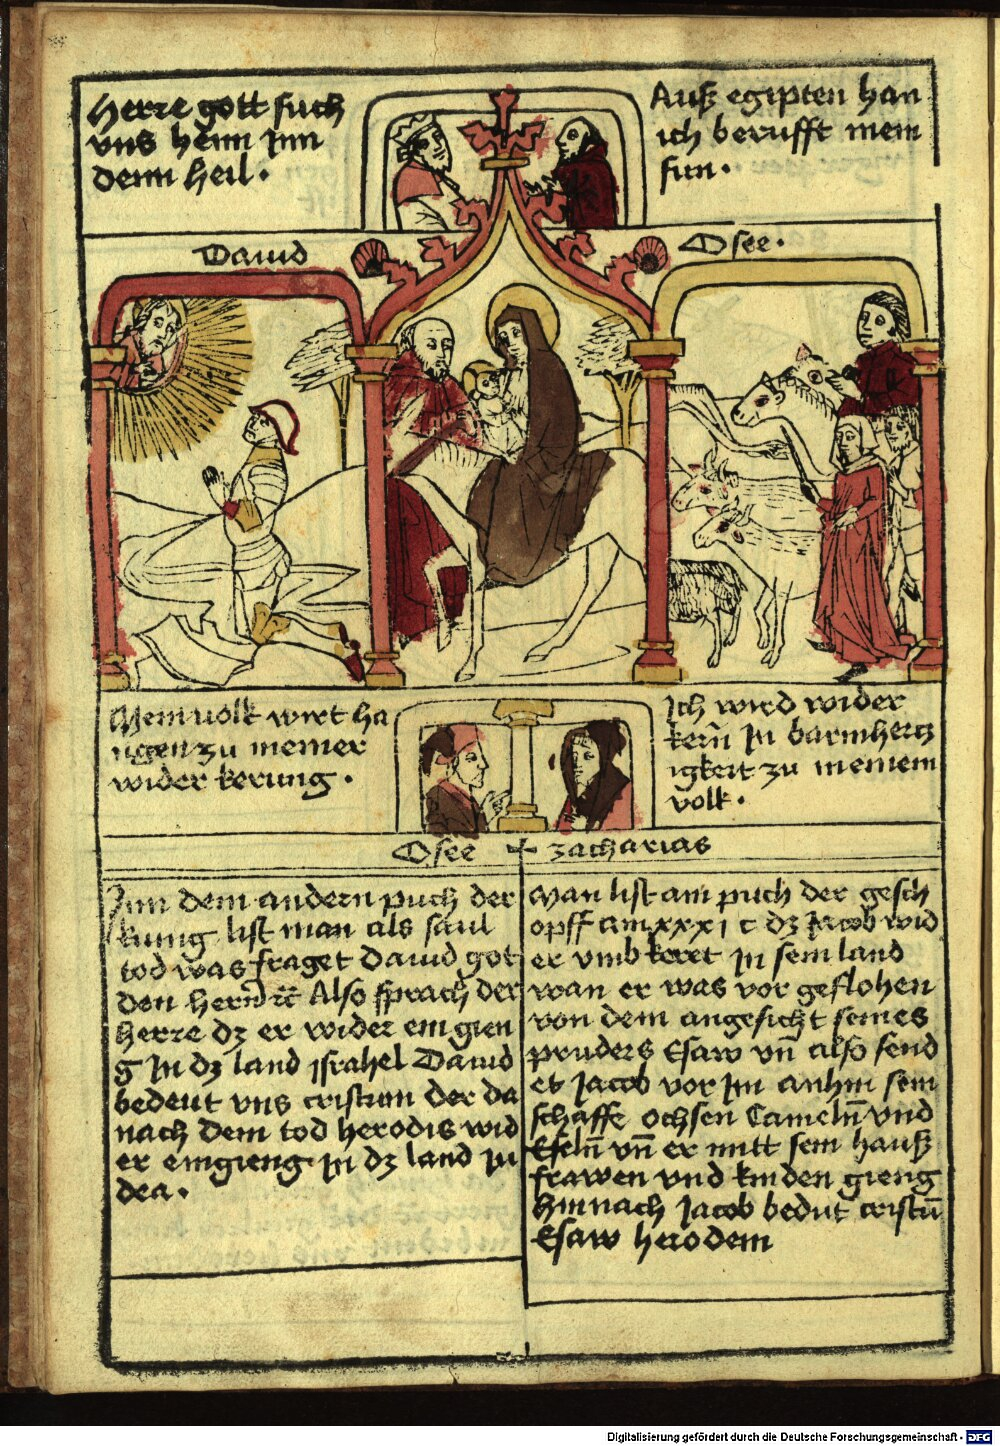 Herre gott such
vns heim Inn
deim heil .
Auß egipten han
ich berufft mein
sun .
Dauid
Osee .
Mein volk wirt ha
ngen zu meiner
wider kerung .
Ich wird wider
kern̄ In barmhercz
igkeit zu meinem
volk .
Osee
zacharias
Inn dem andern puch der
kung list man als saul
tod was fraget Dauid got
den hern̄ ꝛc Also sprach der
herre dz er wider ein gien
g In dz land israhel Dauid
bedeut vns cristum der da
nach dem tod herodis wid
er eingieng In dz land Iu
dea .
Man list am puch der gesch
opff am xxxi c dz Jacob wid
er vmb keret In sein land
wan er was vor geflohen
von dem angesicht seines
pruders Esaw vn̄ also send
et Jacob vor Im anhin sein
schaffe ochsen Cameln̄ vnd
Eseln̄ vn̄ er mitt sein hauß
frawen vnd kinden gieng
hinnach Jacob bedut cristū
Esaw herodem
Digitalisierung gefördert durch die Deutsche Forschungsgemeinschaft - DFG